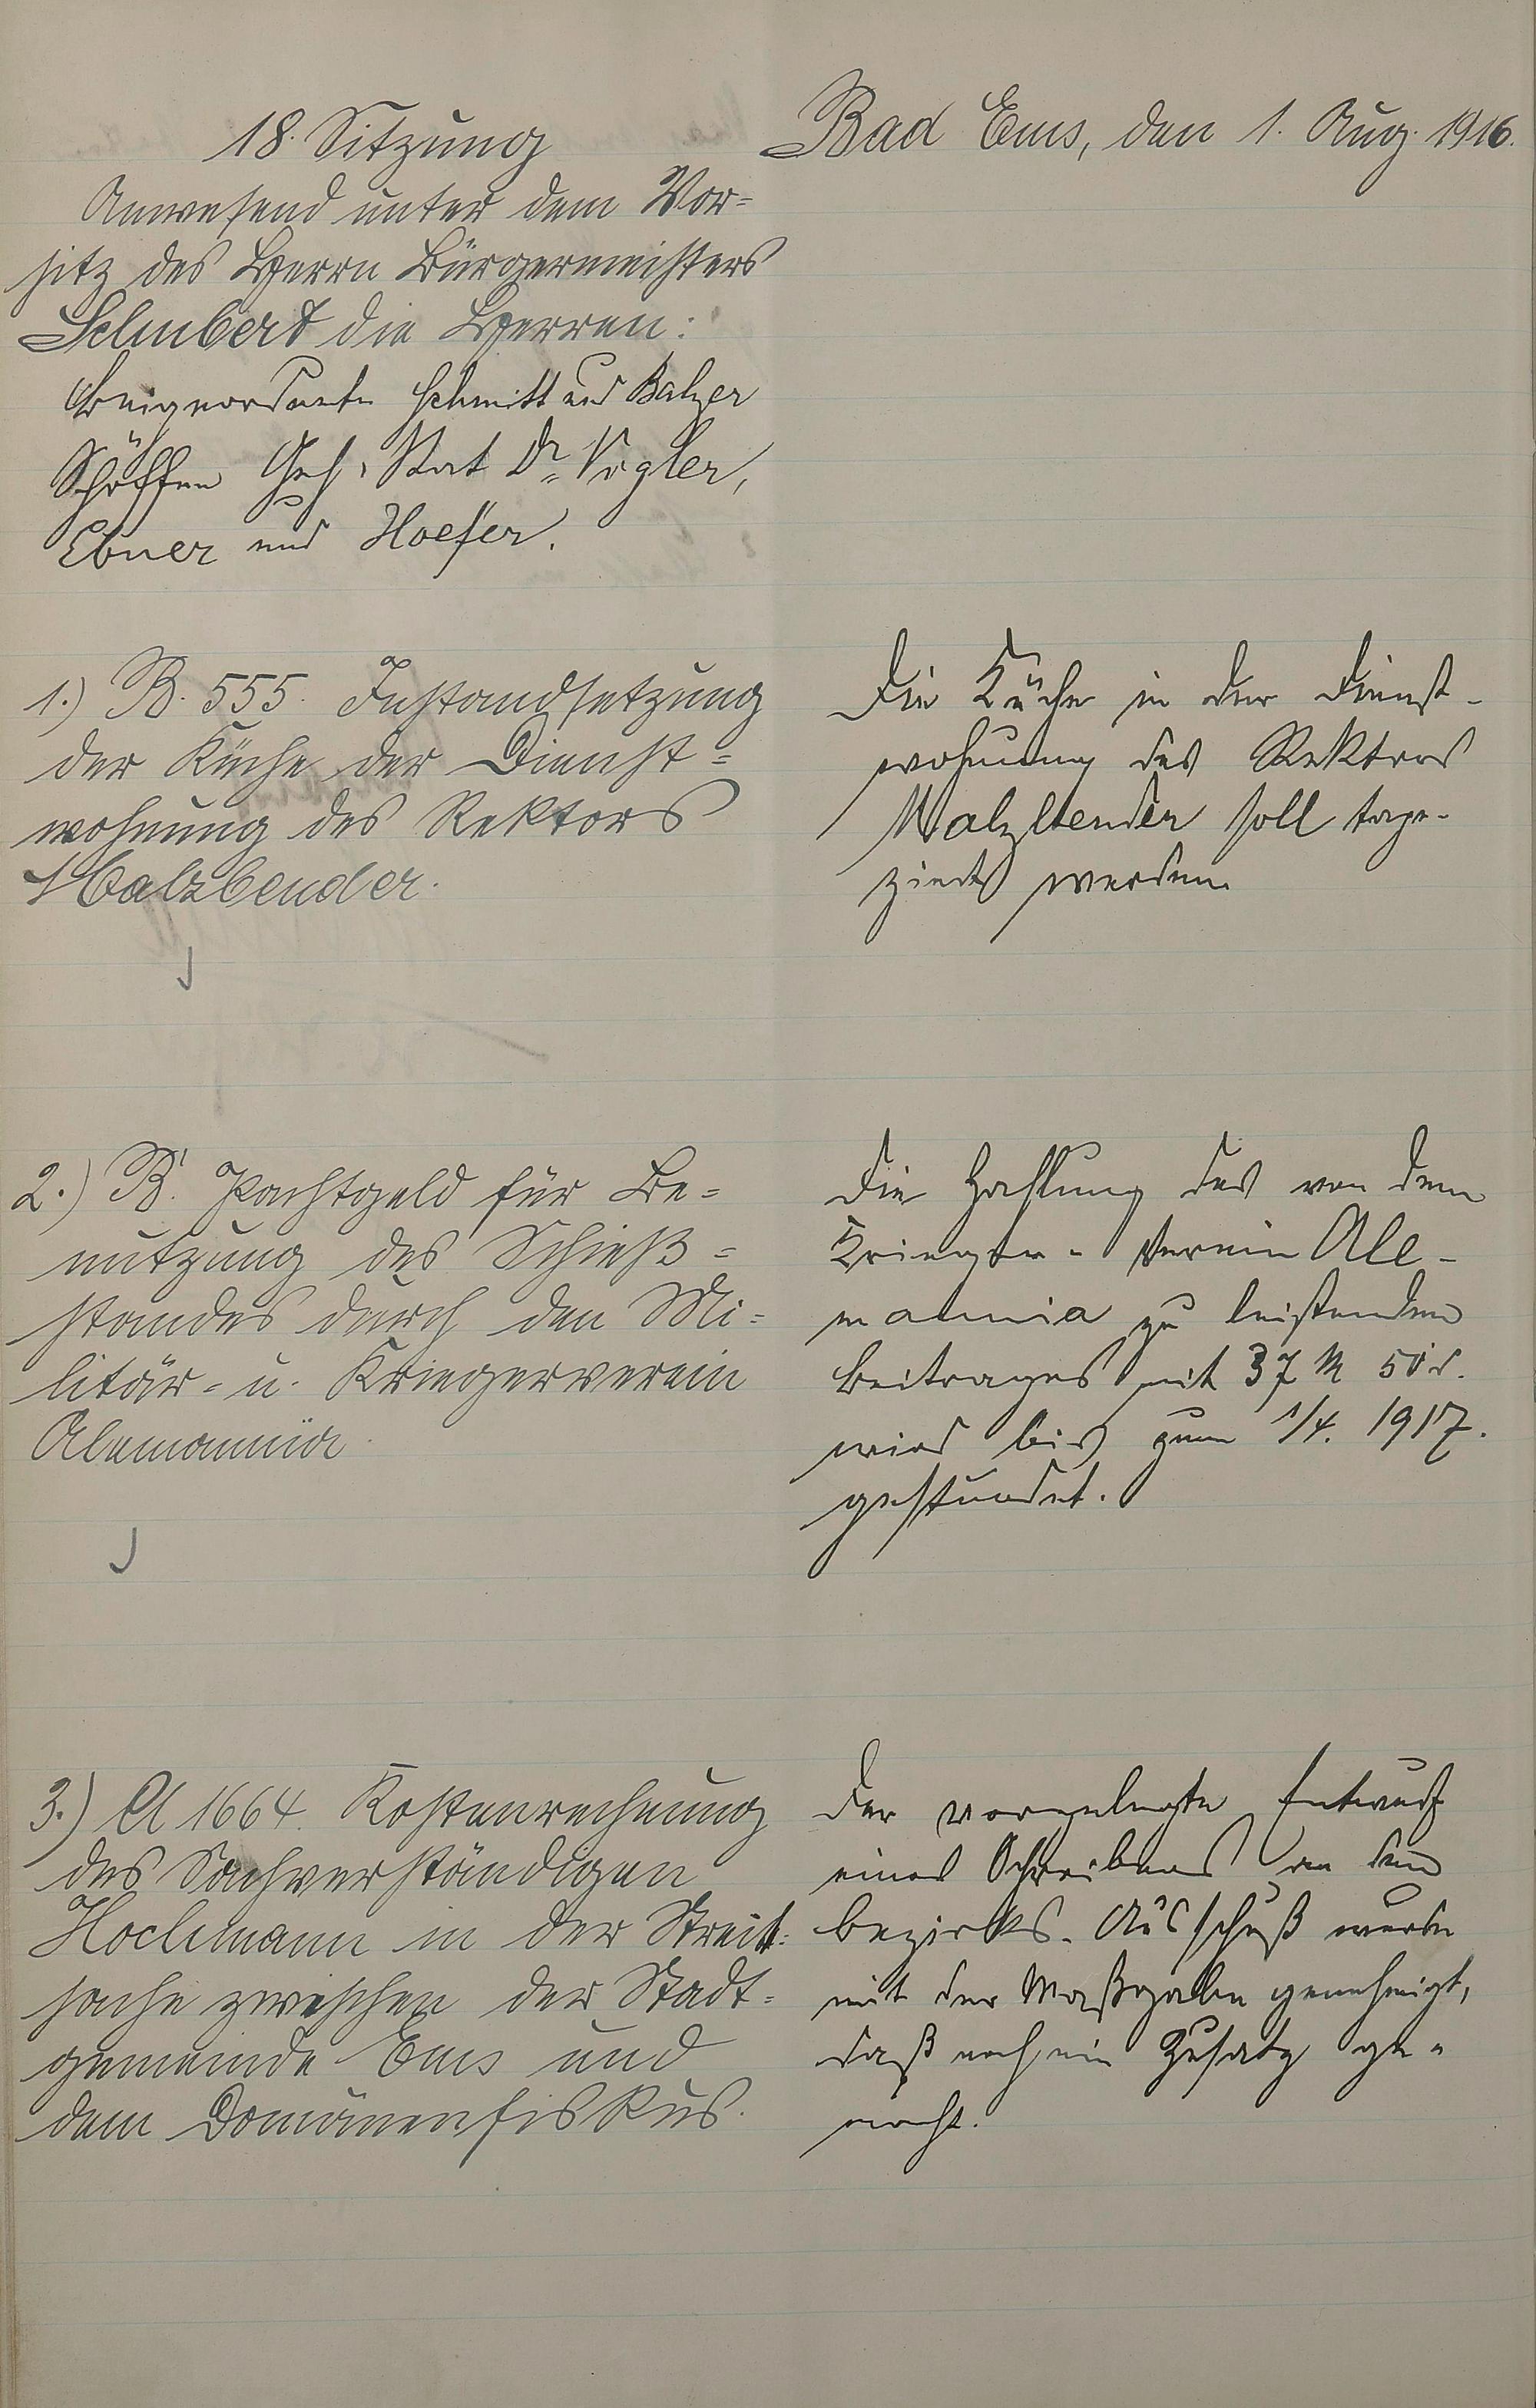 18. Sitzung
Anwesend unter dem Vor=
sitz des Herrn Bürgermeisters
Schubert die Herren:
Beigeordnete Schmitt und Balzer
Schöffen Geh. Rat Dr. Vogler,
Ebner und Hoefer.
Bad Ems, den 1. Aug. 1916.
1.) B. 555. Instandsetzung
der Küche der Dienst=
wohnung des Rektors
Malzbender.
Die Küche in der Dienst-
wohnung des Rektors
Malzbender soll tape-
ziert werden.
2.) B. Pachtgeld für Be=
nutzung des Schieß=
standes durch den Mi=
litär- u. Kriegerverein
Alemannia.
Die Zahlung des von dem
Krieger-Verein Ale-
mannia zu leistenden
Beitrages mit 37 M 50 d.
wird bis zum 1/4. 1917.
gestundet.
3.) A 1664. Kostenrechnung
des Sachverständigen
Hochmann in der Streit=
sache zwischen der Stadt=
gemeinde Ems und
dem Domänenfiskus.
Der vorgelegte Entwurf
eines Schreibens an den
Bezirks-Ausschuß wurde
mit der Maßgabe genehmigt,
daß noch ein Zusatz ge-
macht.